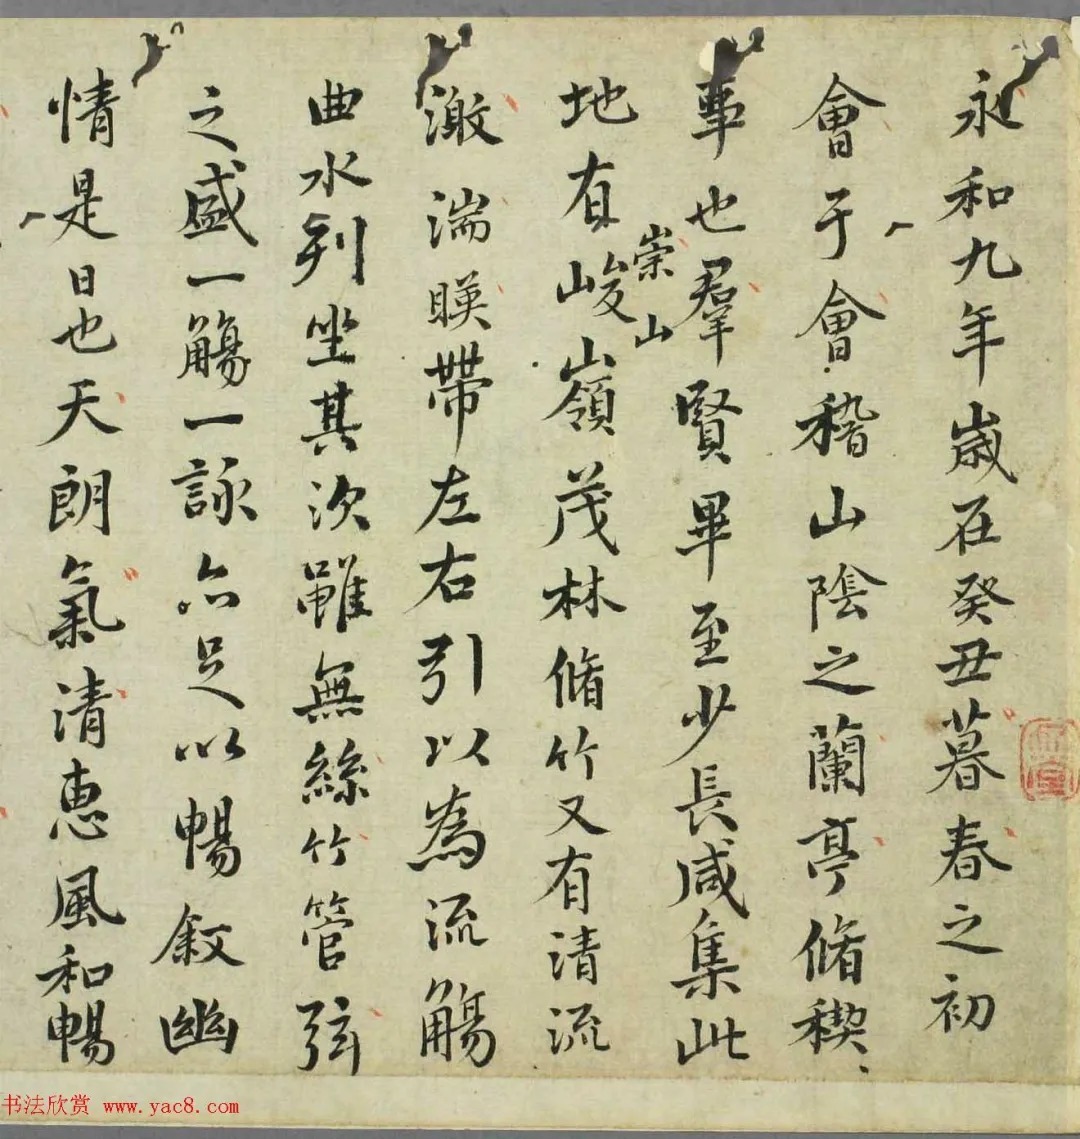 永和九年歲在癸丑暮春之初
會于會稽山陰之蘭亭脩稧
事也羣賢畢至少長咸集此
地有崇山峻嶺茂林脩竹又有清流
激湍暎帶左右引以為流觴
曲水列坐其次雖無絲竹管弦
之盛一觴一詠亦足以暢敘幽
情是日也天朗氣清惠風和暢
书法欣赏 www.yac8.com